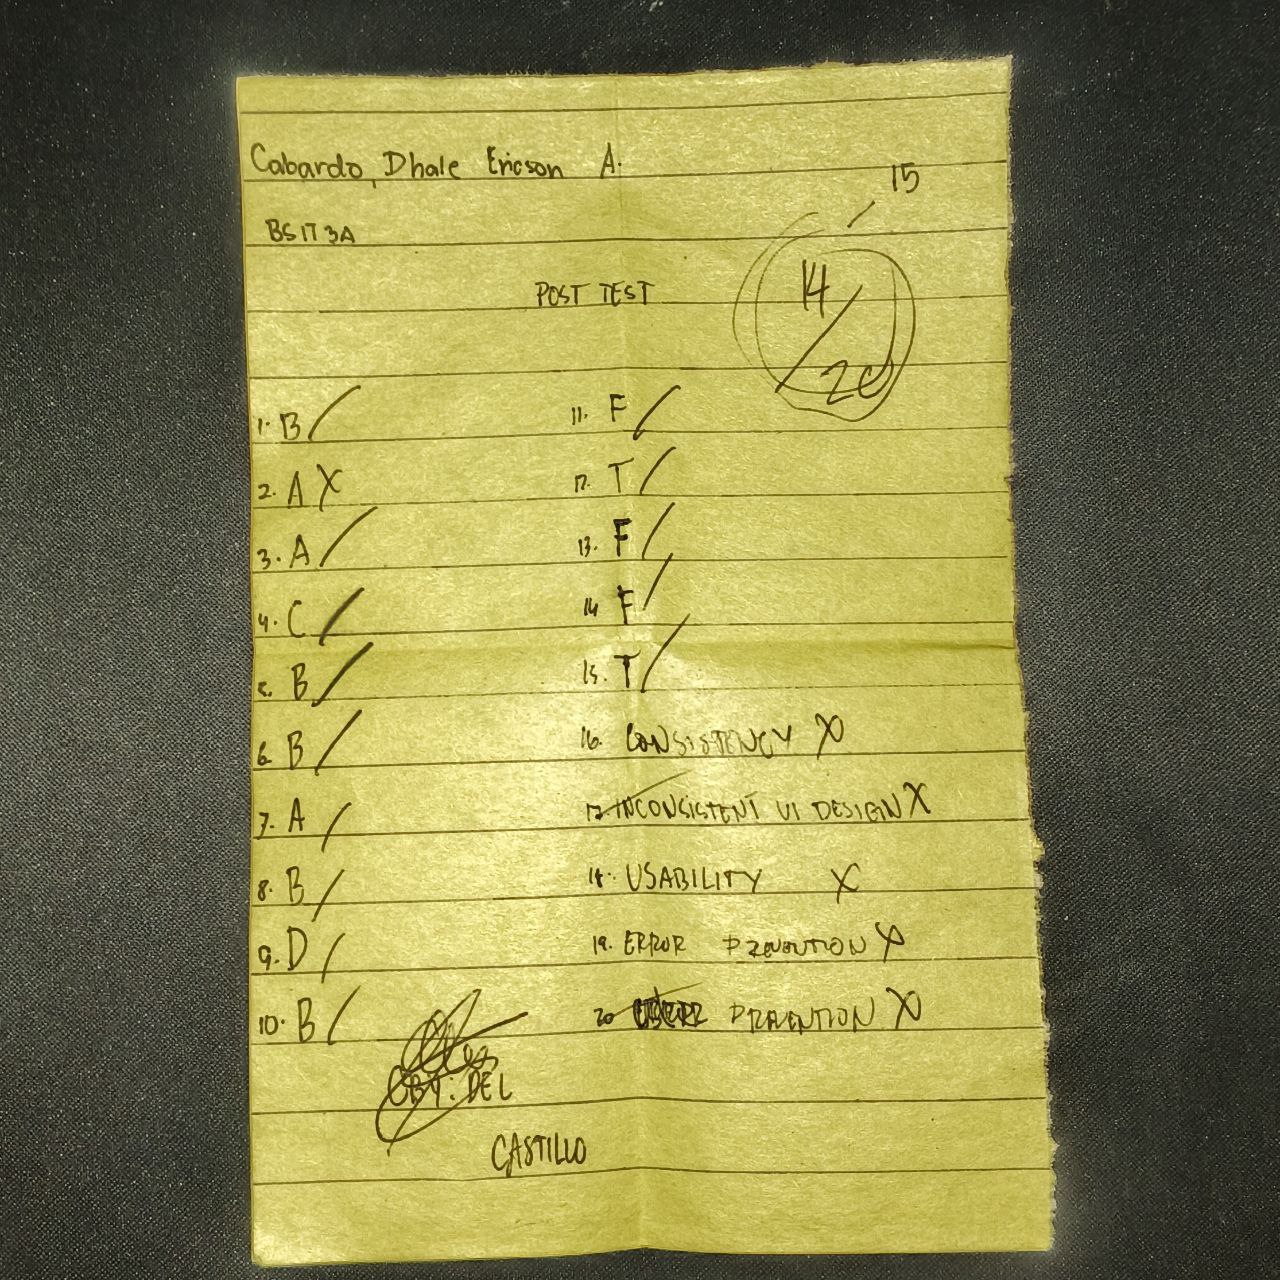 Cabardo, Dhale Ericson A.
15
BSIT 3A
POST TEST
14/20
1. B
2. A X
3. A
4. C
5. B
6. B
7. A
8. B
9. D
10. B
11. F
12. T
13. F
14 F
15. T
16. CONSISTENCY X
17. INCONSISTENT UI DESIGN X
18. USABILITY X
19. ERROR PREVENTION X
20 PREVENTION X
CBY: DEL
CASTILLO